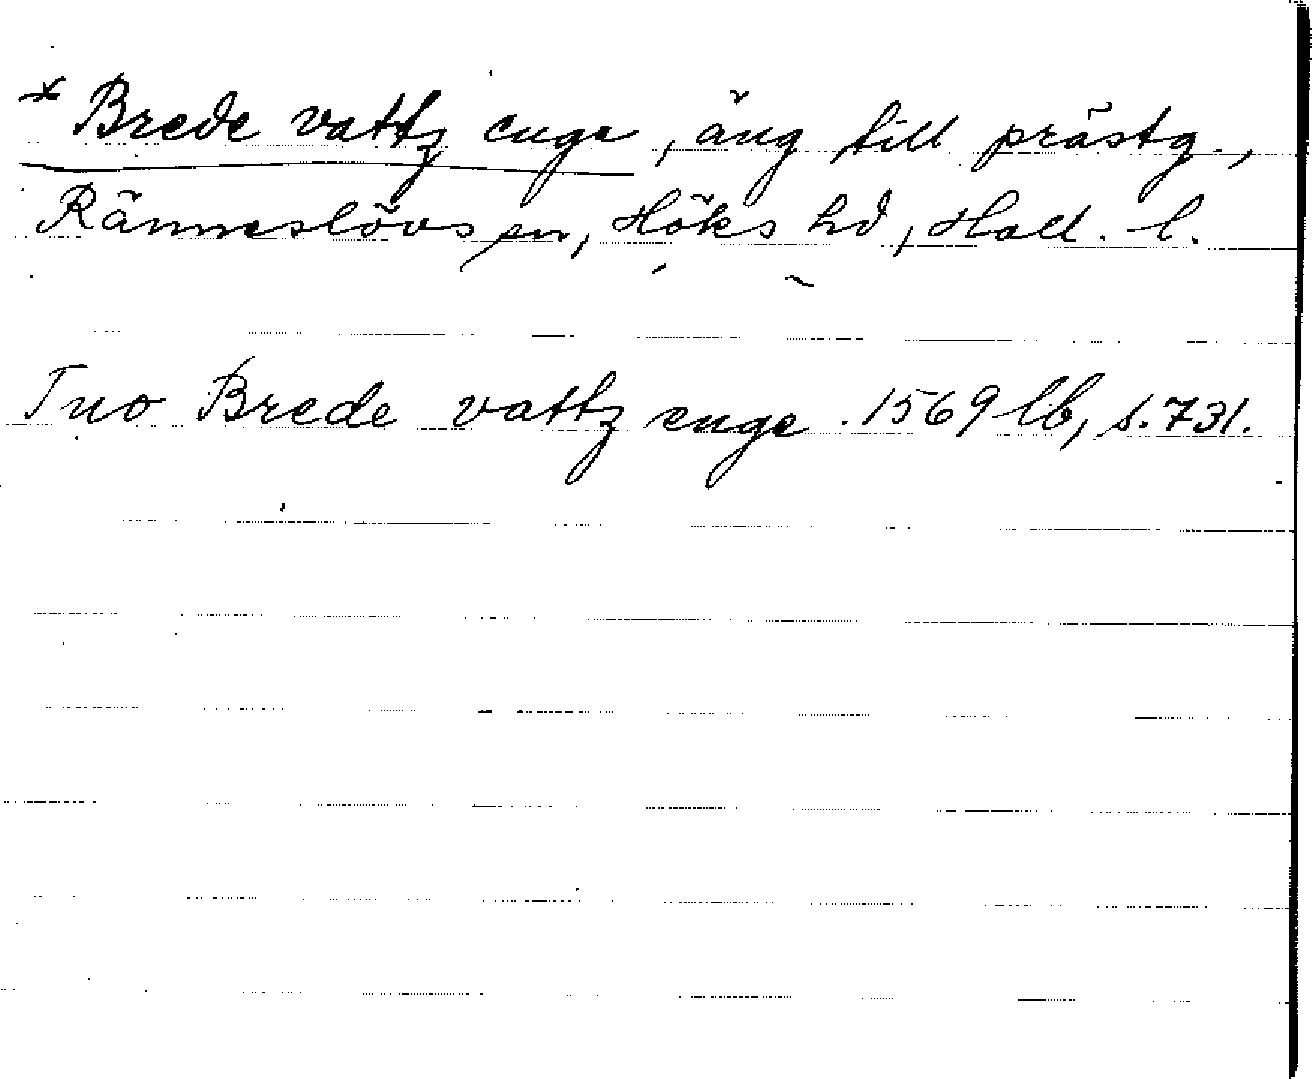 * Brede vattz enge, äng till prästg.,
Ränneslövs sn, Höks hd, Hall. l.
Tuo Brede vattz enge. 1569 lb, s. 731.